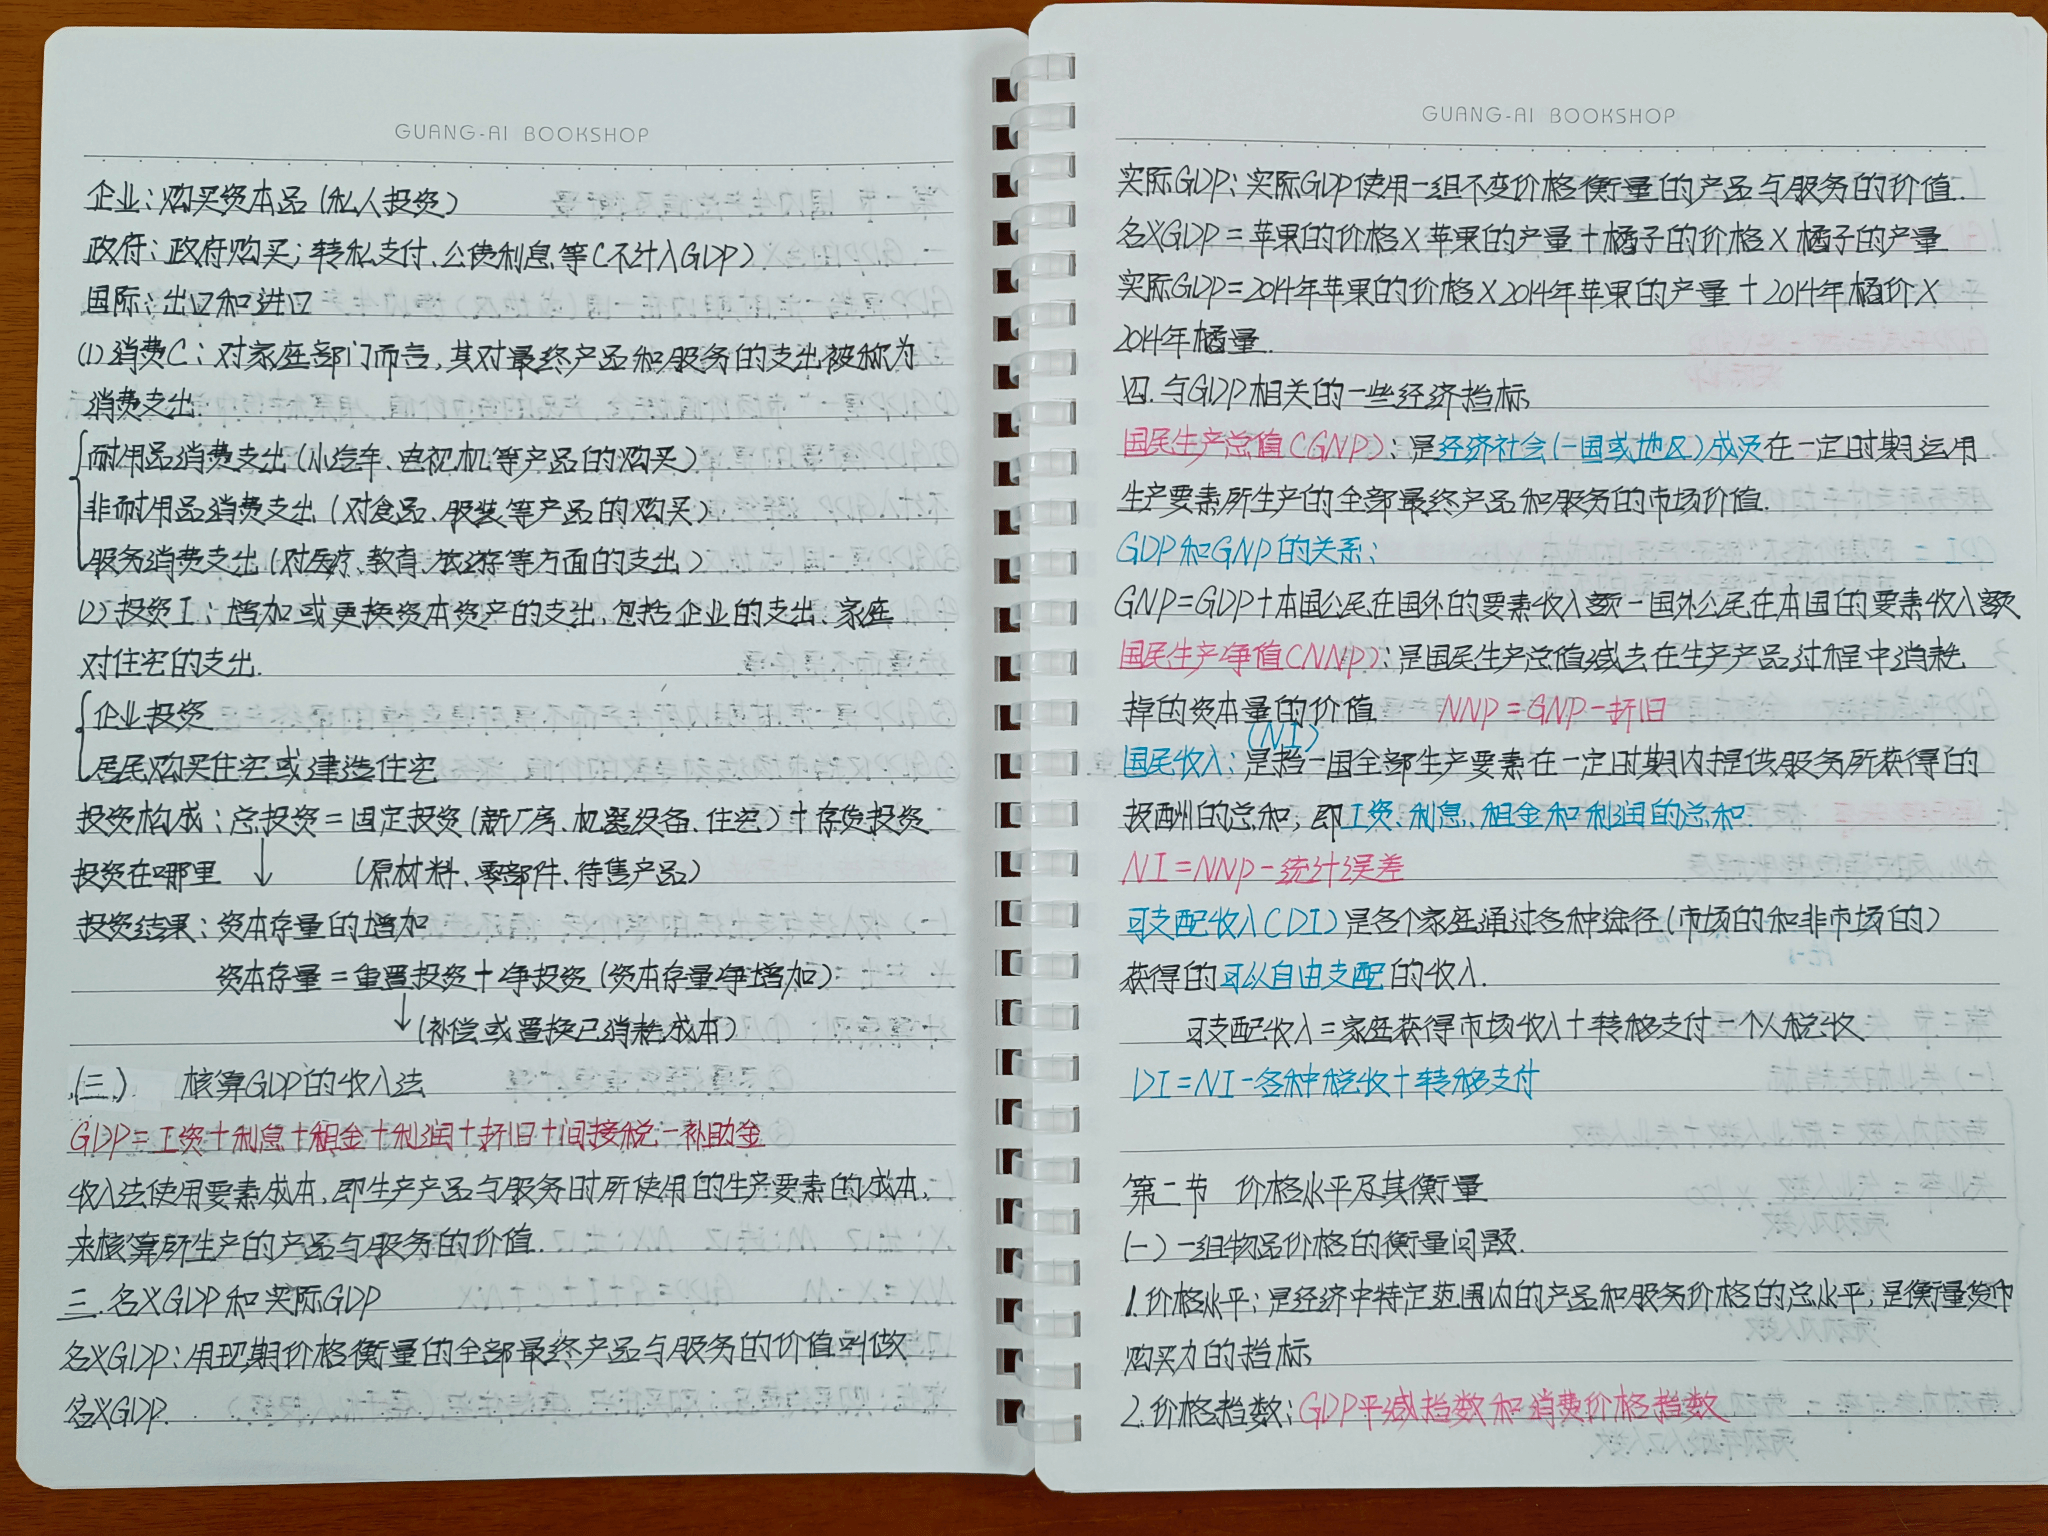 GUANG-AI BOOKSHOP
企业：购买资本品（私人投资）
政府：政府购买；转私支付、公债利息等（不计入GDP）
国际：出口和进口
(1)消费C：对家庭部门而言，其对最终产品和服务的支出被称为
消费支出.
耐用品消费支出（小汽车、电视机等产品的购买）
非耐用品消费支出（对食品、服装等产品的购买）
服务消费支出（对医疗、教育、旅游等方面的支出）
(2)投资I：增加或更换资本资产的支出，包括企业的支出、家庭
对住宅的支出.
企业投资
居民购买住宅或建造住宅
投资构成：总投资＝固定投资（新厂房、机器设备、住宅）＋存货投资
投资在哪里 ↓ （原材料、零部件、待售产品）
投资结果：资本存量的增加
资本存量＝重置投资＋净投资（资本存量净增加）
↓（补偿或置换已消耗成本）
(三) 核算GDP的收入法
GDP＝工资＋利息＋租金＋利润＋折旧＋间接税－补助金
收入法使用要素成本，即生产产品与服务时所使用的生产要素的成本，
来核算所生产的产品与服务的价值.
三.名义GDP和实际GDP
名义GDP：用现期价格衡量的全部最终产品与服务的价值叫做
名义GDP.
GUANG-AI BOOKSHOP
实际GDP：实际GDP使用一组不变价格衡量的产品与服务的价值.
名义GDP＝苹果的价格×苹果的产量＋橘子的价格×橘子的产量
实际GDP＝2014年苹果的价格×2014年苹果的产量＋2014年橘价×
2014年橘量.
四.与GDP相关的一些经济指标
国民生产总值（GNP）：是经济社会（一国或地区）成员在一定时期运用
生产要素所生产的全部最终产品和服务的市场价值.
GDP和GNP的关系：
GNP＝GDP＋本国公民在国外的要素收入额－国外公民在本国的要素收入额
国民生产净值（NNP）：是国民生产总值减去在生产产品过程中消耗
掉的资本量的价值 NNP＝GNP－折旧
(NI)
国民收入：是指一国全部生产要素在一定时期内提供服务所获得的
报酬的总和，即工资、利息、租金和利润的总和.
NI＝NNP－统计误差
可支配收入（DI）是各个家庭通过各种途径（市场的和非市场的）
获得的可以自由支配的收入.
可支配收入＝家庭获得市场收入＋转移支付－个人税收
DI＝NI－各种税收＋转移支付
第二节 价格水平及其衡量
(一)一组物品价格的衡量问题.
1.价格水平：是经济中特定范围内的产品和服务价格的总水平，是衡量货币
购买力的指标
2.价格指数：GDP平减指数和消费价格指数